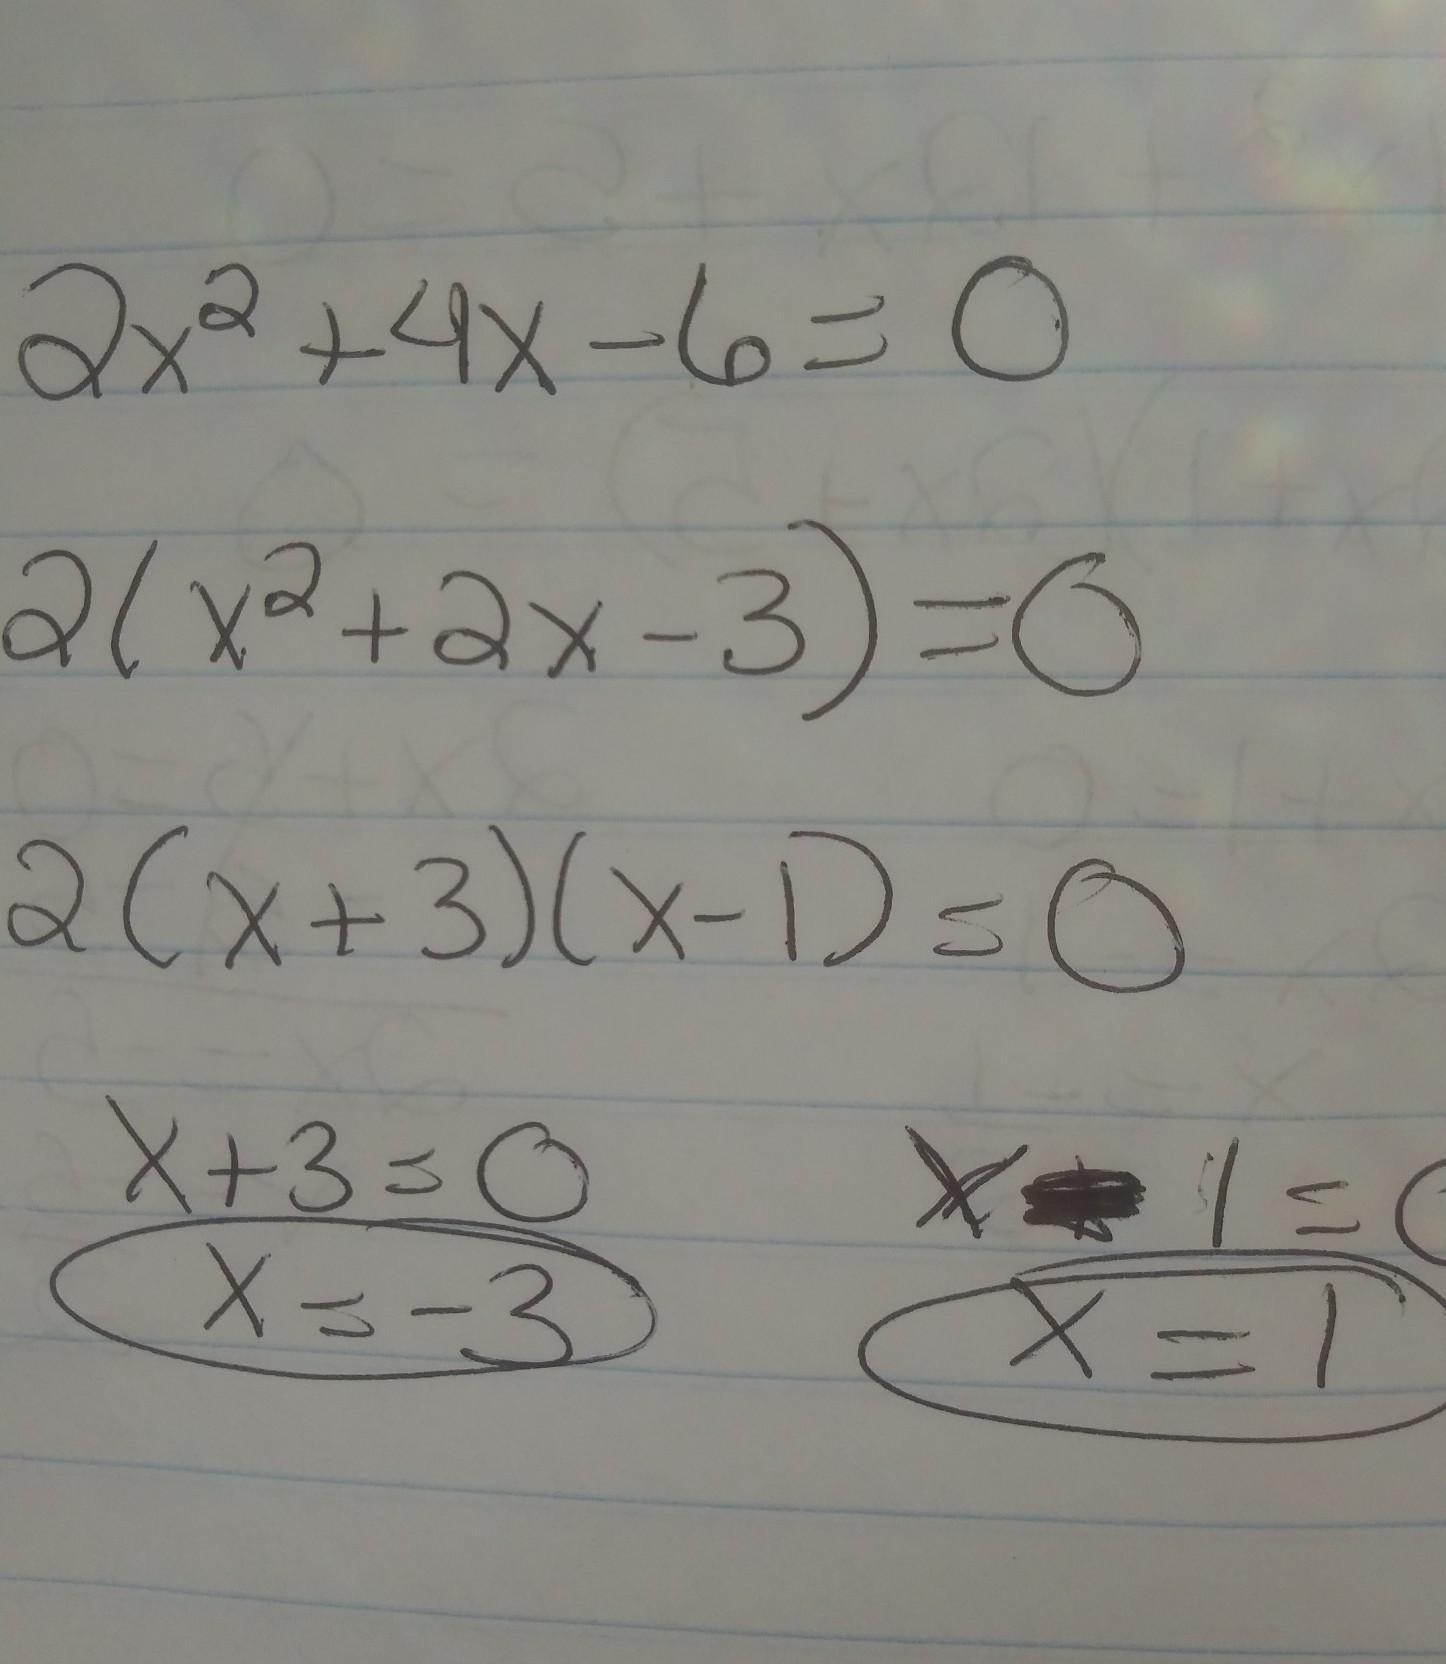 2x² + 4x - 6 = 0
2(x² + 2x - 3) = 0
2(x + 3)(x - 1) = 0
x + 3 = 0 x - 1 = 0
x = -3 x = 1